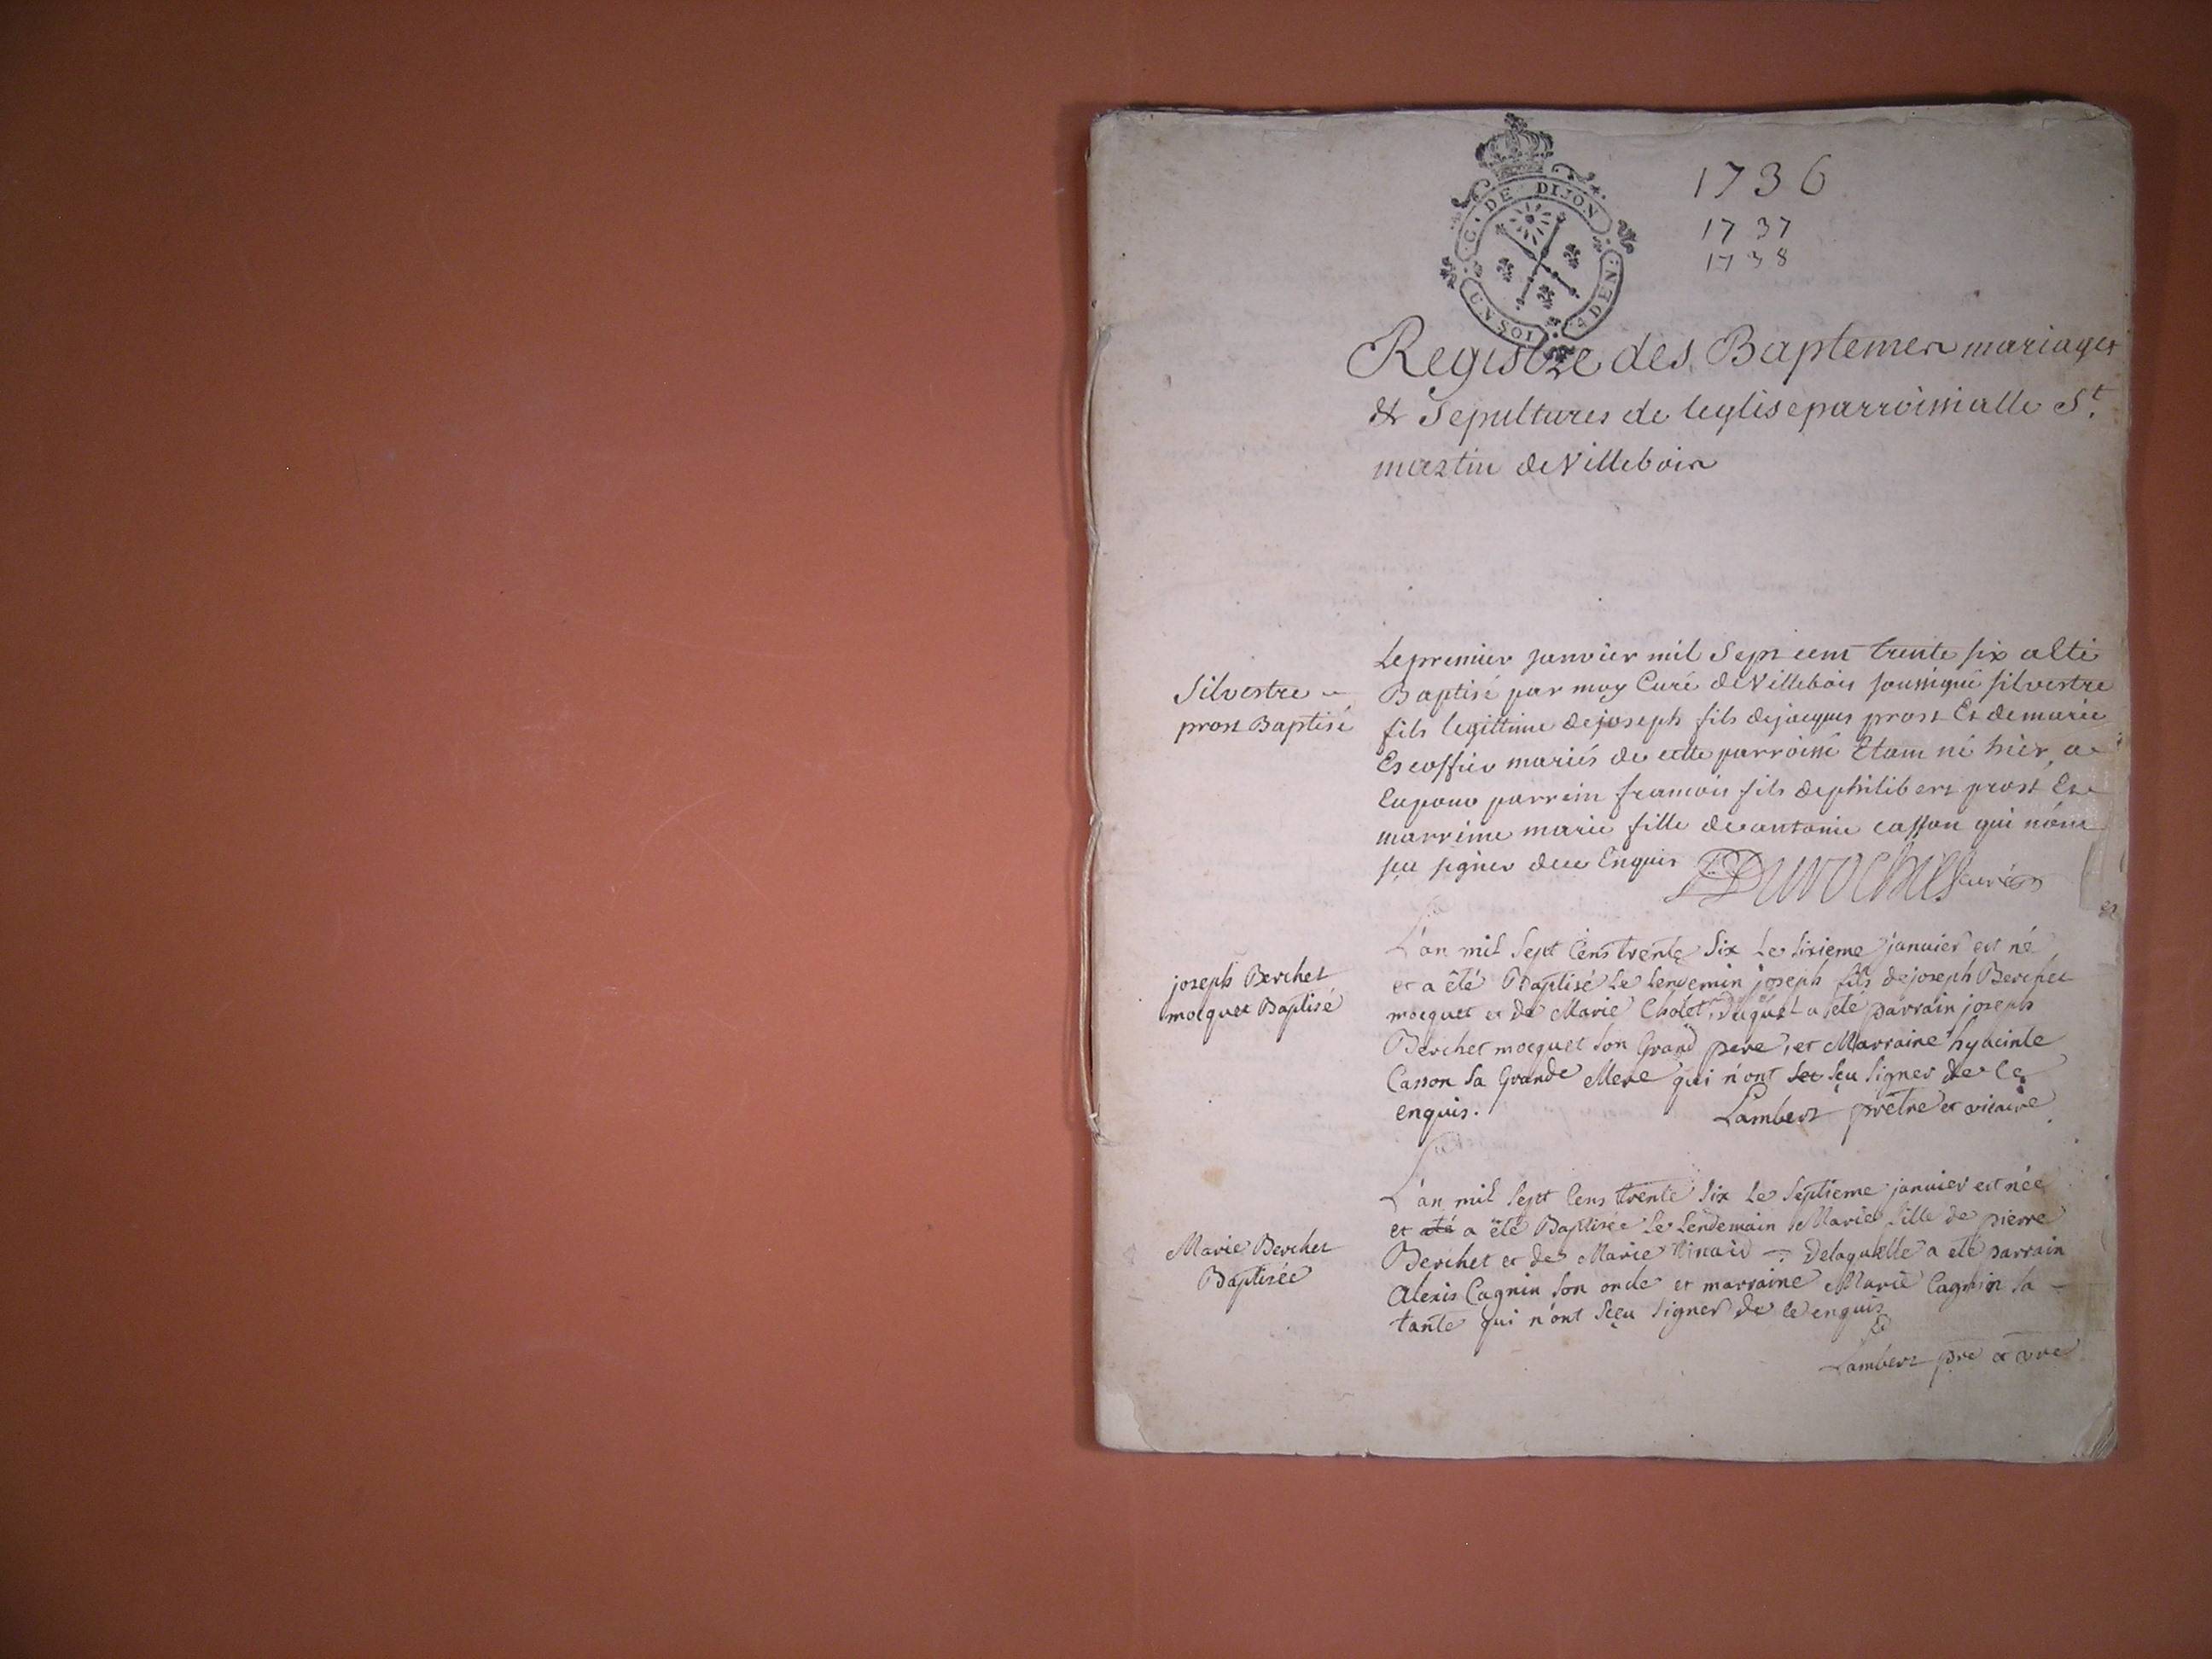 1736
1737
1738
G. DE DIJON
UN SOL
4 DEN.
Registre des Baptemes mariages
& Sepultures de leglise parroissialle St.
martin de Villebois
Silvestre
prost Baptisé
Le premier janvier mil Sept cent trente six a Eté
Baptisé par moy Curé de Villebois soussigné silvestre
fils legittime de joseph fils de jacques prost Et de marie
Escoffier mariés de cette parroisse Etant né hier, a
Eu pour parrein francois fils de philibert prost Et
marreine marie fille de antoine casson qui n'ont
sçu signer de ce Enquis
curé
joseph Berchet
mocquet Baptisé
L'an mil sept cens trente six le sixieme janvier est né
et a êté Baptisé le lendemin joseph fils de joseph Berchet
mocquet et de Marie Cholet, duquel a eté parrain joseph
Berchet mocquet son Grand pere, et Marraine hyacinte
Casson sa Grande Mere qui n'ont sçu signer de ce
enquis. Lambert prêtre et vicaire
Marie Berchet
Baptisée
L'an mil sept cens trente six le septieme janvier est née
et a été Baptisée le lendemain Marie fille de pierre
Berchet et de Marie Delaquelle a eté parrain
Alexis Cagnin son oncle et marraine Marie Cagnin sa
tante qui n'ont sçeu signer de ce enquis
Lambert pre et vre